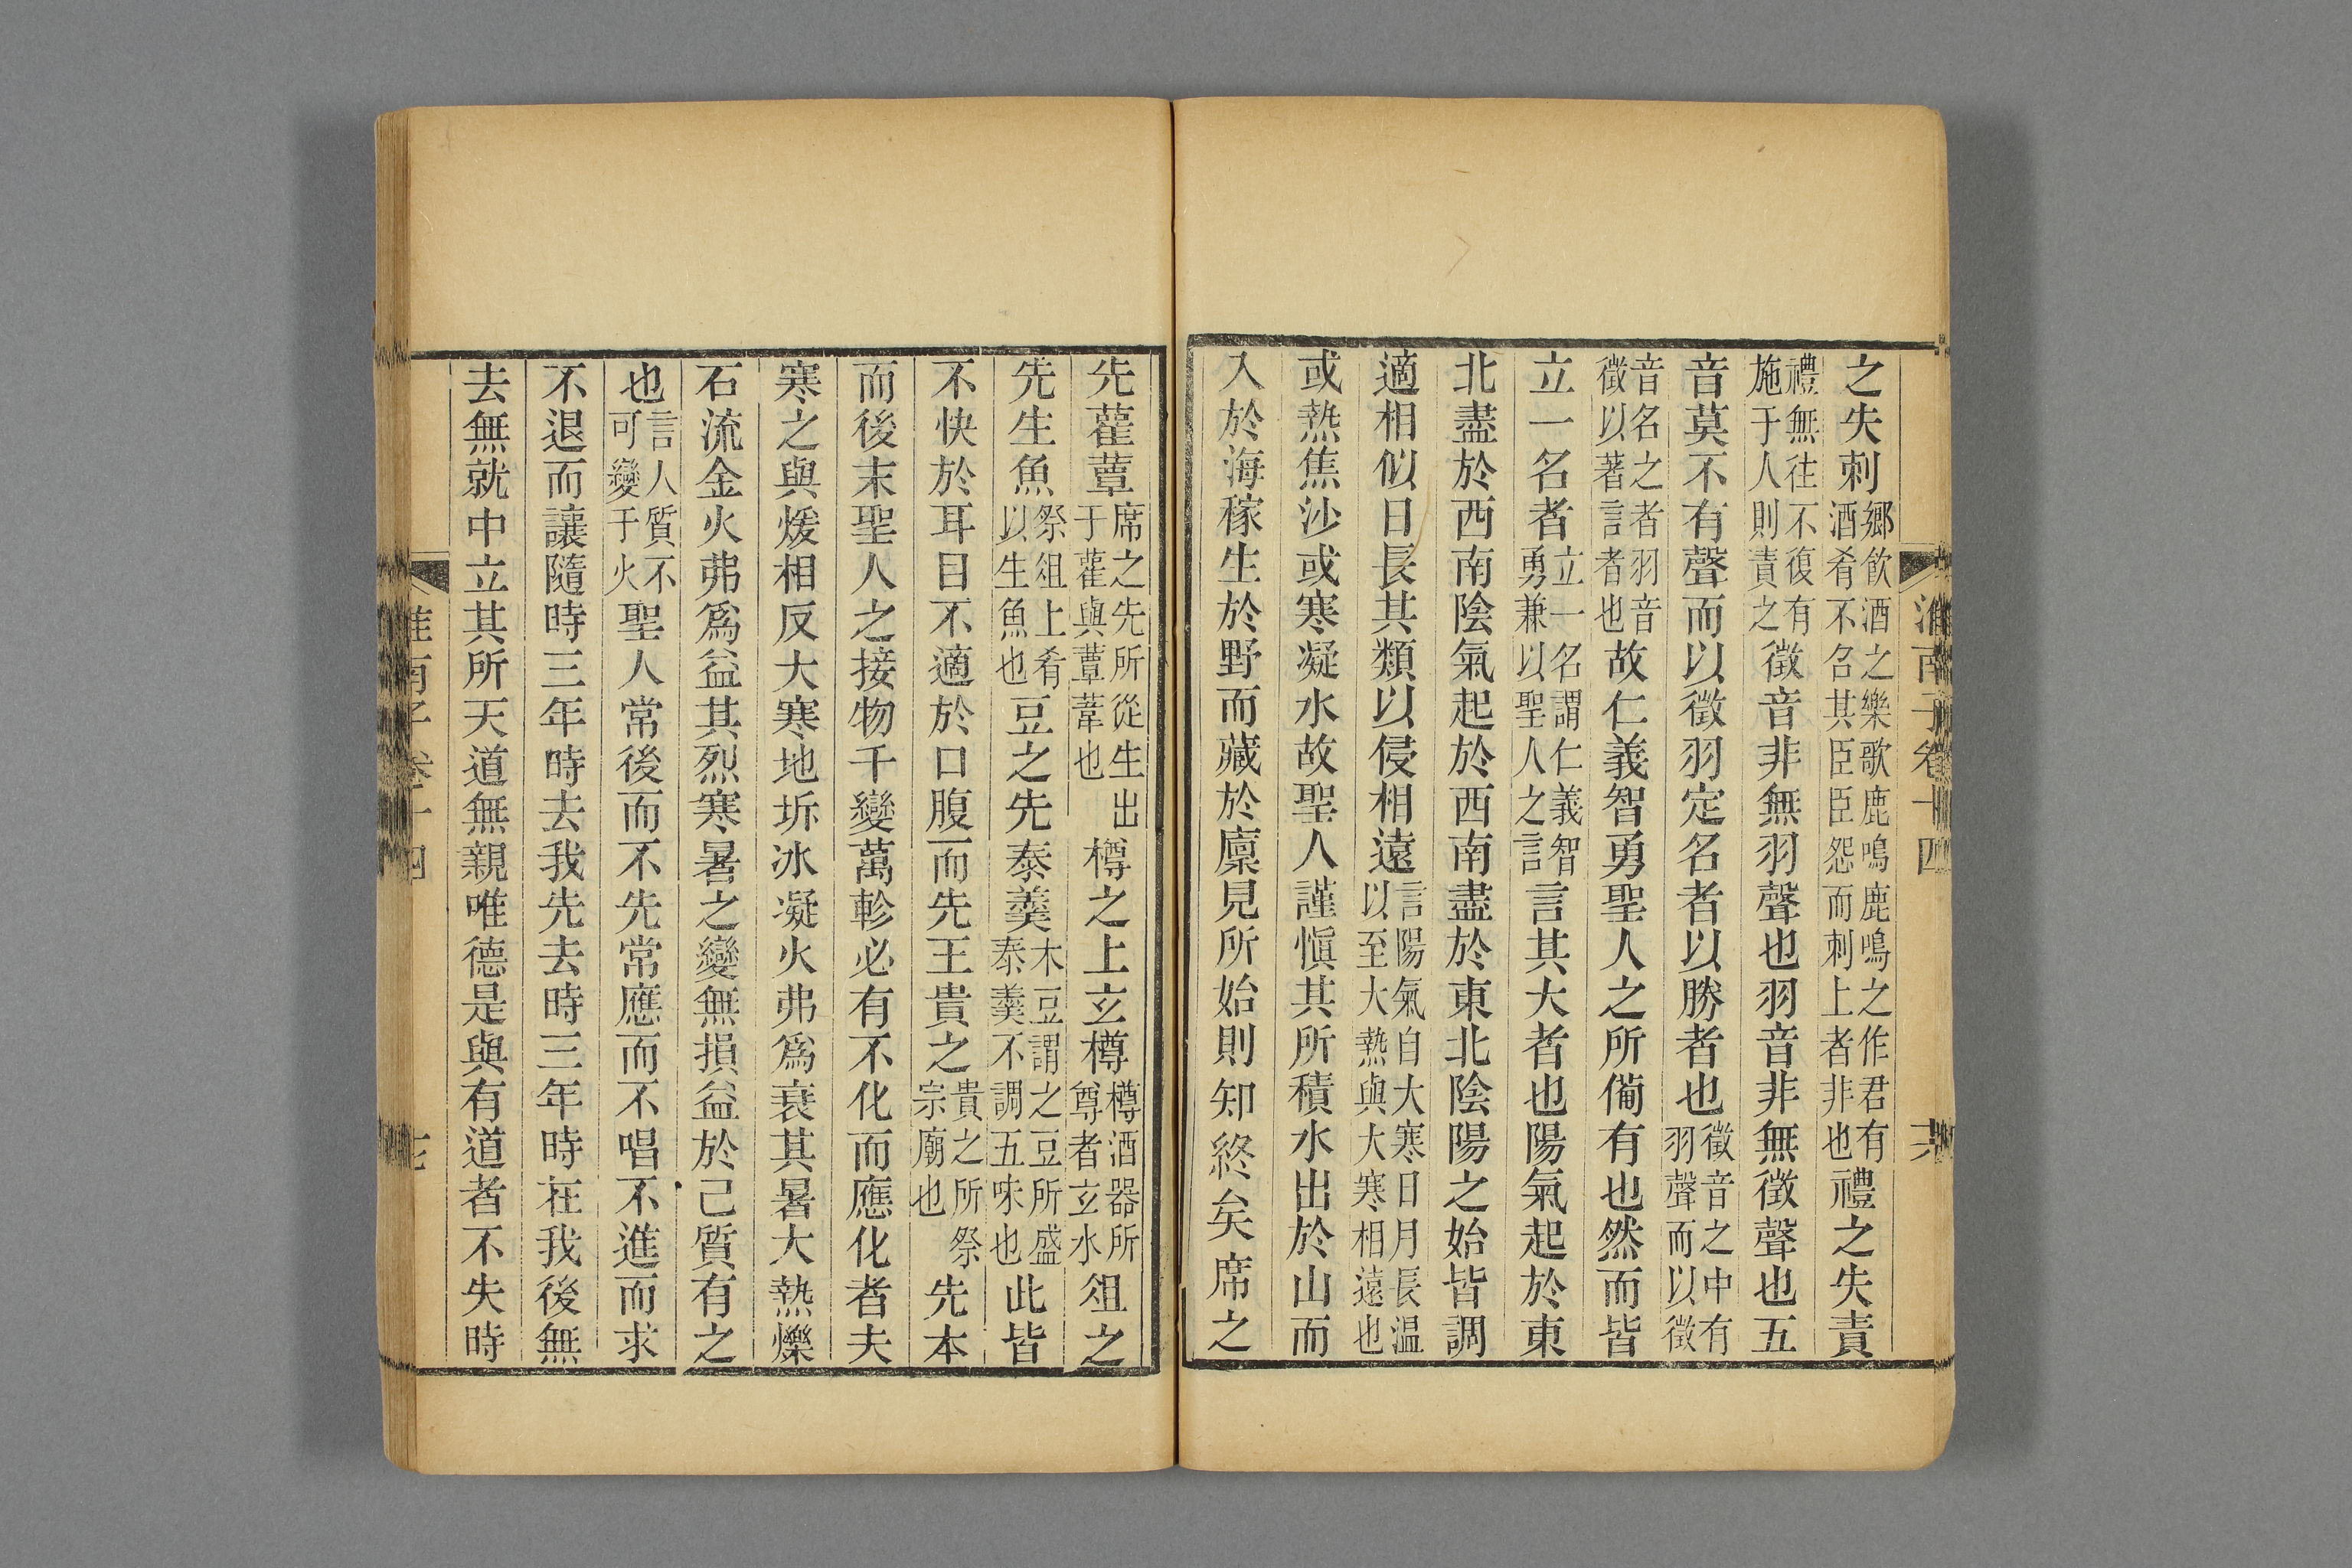 淮南子卷十四
之失刺鄉飲酒之樂歌鹿鳴鹿鳴之作君有酒肴不召其臣臣怨而刺上者非也禮之失責
禮無往不復有施于人則責之徵音非無羽聲也羽音非無徵聲也五
音莫不有聲而以徵羽定名者以勝者也徵音之中有羽聲而以徵
音名之者羽音徵以著言者也故仁義智勇聖人之所備有也然而皆
立一名者立一名謂仁義智勇兼以聖人之言言其大者也陽氣起於東
北盡於西南陰氣起於西南盡於東北陰陽之始皆調
適相似日長其類以侵相遠言陽氣自大寒日月長温以至大熱與大寒相遠也
或熱焦沙或寒凝水故聖人謹愼其所積水出於山而
入於海稼生於野而藏於廩見所始則知終矣席之
先雚蕈席之先所從生出于雚與蕈葦也樽之上玄樽樽酒器所尊者玄水俎之
先生魚祭俎上肴以生魚也豆之先泰羹木豆謂之豆所盛泰羹不調五味也此皆
不快於耳目不適於口腹而先王貴之貴之所祭宗廟也先本
而後末聖人之接物千變萬軫必有不化而應化者夫
寒之與煖相反大寒地坼冰凝火弗爲衰其暑大熱爍
石流金火弗爲益其烈寒暑之變無損益於己質有之
也言人質不可變于火聖人常後而不先常應而不唱不進而求
不退而讓隨時三年時去我先去時三年時在我後無
去無就中立其所天道無親唯德是與有道者不失時
淮南子卷十四